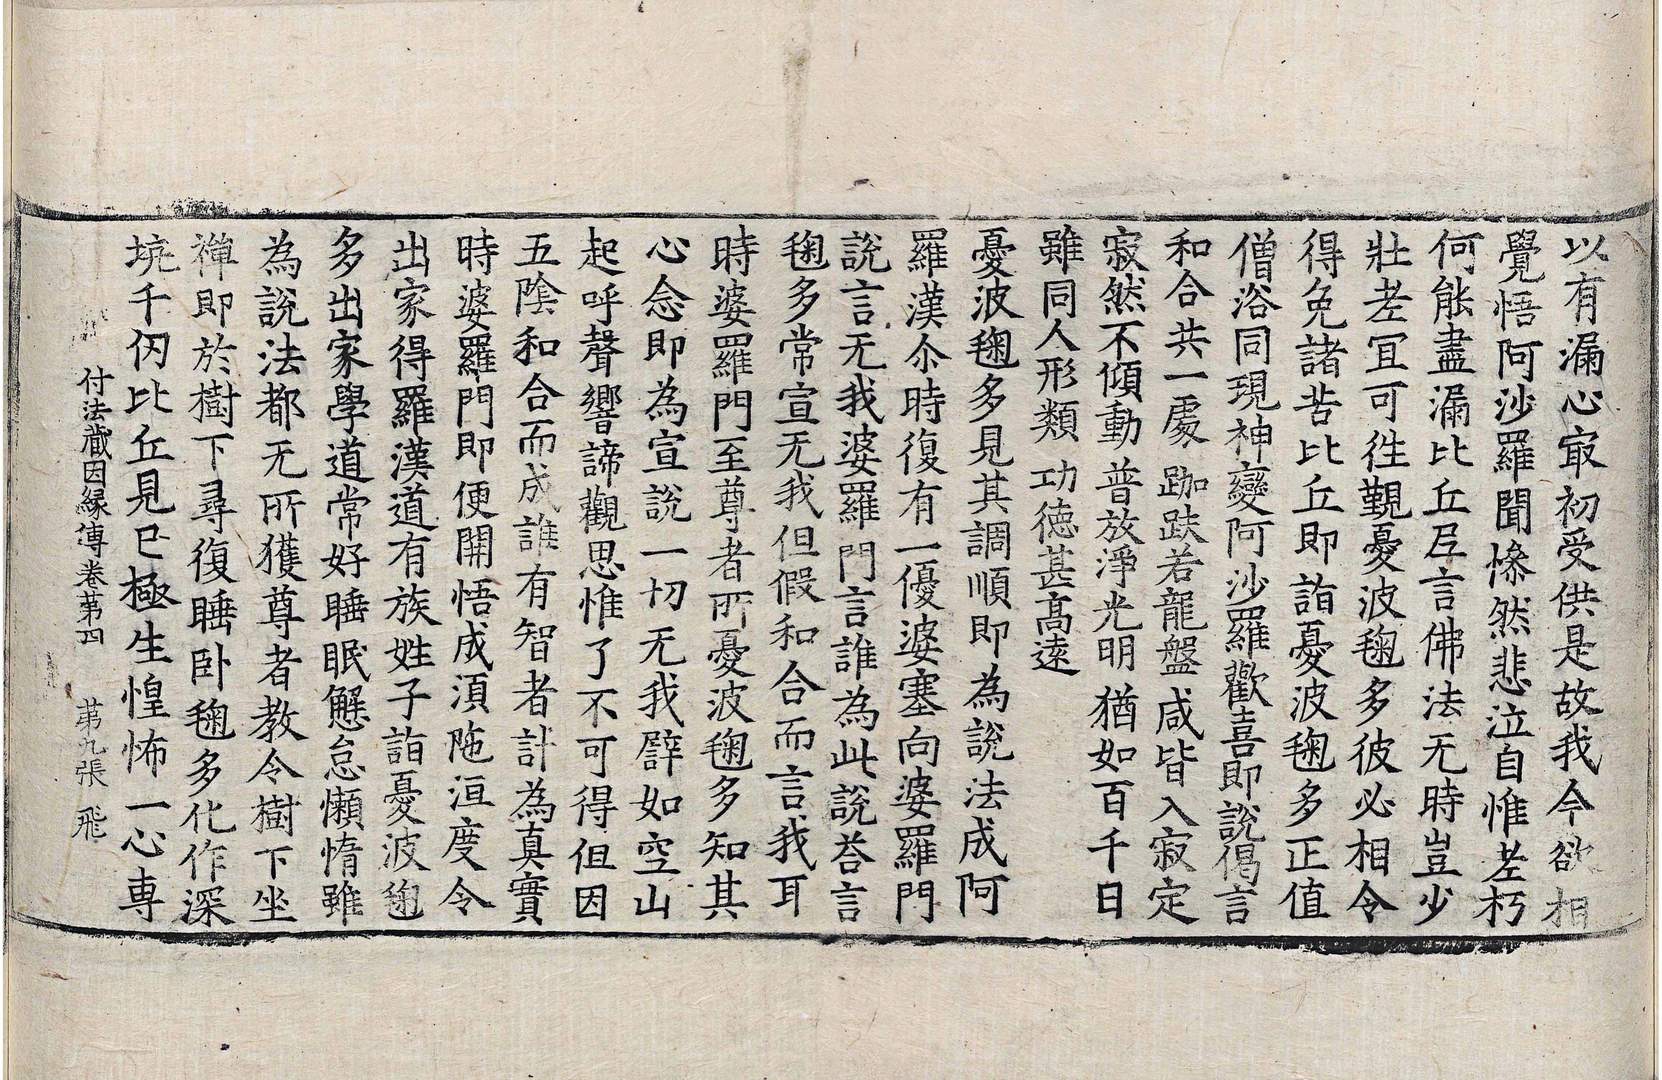 以有漏心㝡初受供是故我今欲相
覺悟阿沙羅聞慘然悲泣自惟老朽
何能盡漏比丘尼言佛法无時豈少
壯老冝可徃觐憂波毱多彼必相令
得免諸苦比丘即詣憂波毱多正值
僧浴同現神變阿沙羅歡喜即說偈言
和合共一處　跏趺若龍盤　咸皆入寂定
寂然不傾動　普放淨光明　猶如百千日
雖同人形類　功德甚髙遠
憂波毱多見其調順即為說法成阿
羅漢尒時復有一優婆塞向婆羅門
說言无我婆羅門言誰為此說荅言
毱多常宣无我但假和合而言我耳
時婆羅門至尊者所憂波毱多知其
心念即為宣說一切无我譬如空山
起呼聲響諦觀思惟了不可得但因
五陰和合而成誰有智者計為真實
時婆羅門即便開悟成湏陁洹度令
出家得羅漢道有族姓子詣憂波毱
多出家學道常好睡眠懈怠懶惰雖
為說法都无所獲尊者教令樹下坐
禪即於樹下尋復睡卧毱多化作深
坑千仞比丘見已極生惶怖一心專
付法藏因縁傳卷苐四　苐九張　飛